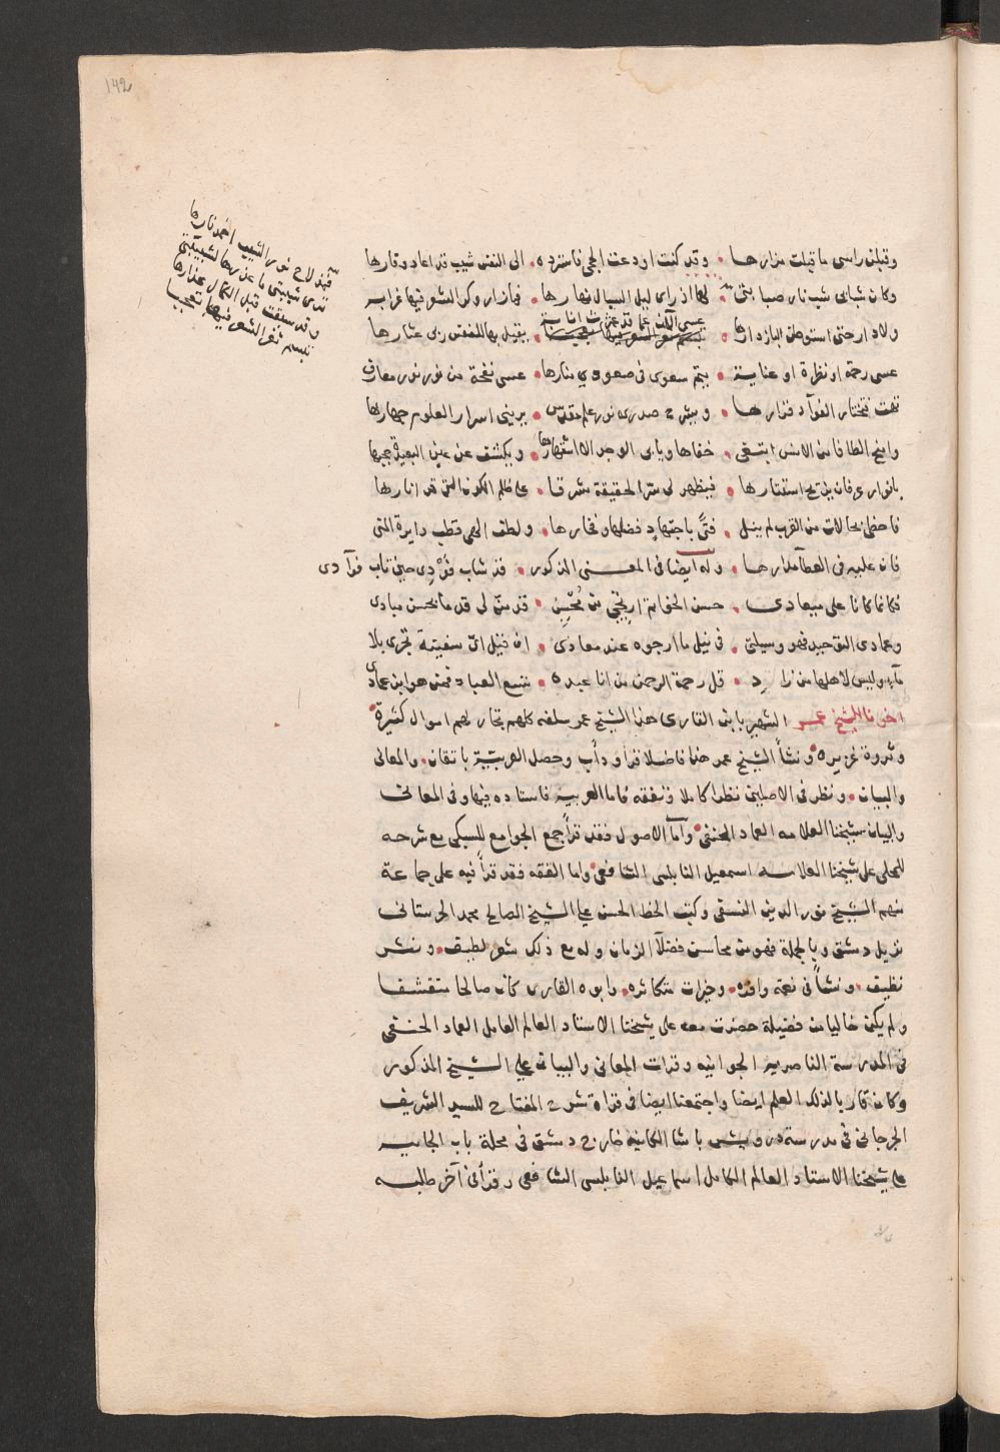 وقبلن راسي ما قبلت مزارها • وقد كنت اودعت الحجى فاسترده • الى النفس شيب قد اعاد وقارها
وكان شبابي شب نار صبابتي • رأى ليل السبال نهارها • غراب
ولا دار حتى استوطن الباز دارها • عسى الآن عما قد عثرت انابة • يقيل بها للنفس ربي عثارها
عسى رحمة او نظرة او عناية • يتم سعودى في صعودي منارها • عسى نفحة من نور نور معارف
تهب فتختار الفوآد قرارها • ويشرح صدرى نور علم مقدس • يريني اسرار العلوم جهارها
خفاها ويابى الوجد الا اشتهارها • ويكشف عن عين البصيرة حجبها
بانوار عرفان يزيح استتارها • فيظهر لي سر الحقيقة مشرقا • على ظلم الكون التي قد انارها
فاحظى بحالات من القرب لم ينل • فتى باجتهاد فضلها وفخارها • ولطف الهي قطب دايرة المنى
فان عليه في العطآ مدارها • وله ايضا في المعنى المذكور • قد شاب فودي حين تاب فوآدى
فكانما كانا على ميعادى • حسن الختامة ارتجي من محسن • قد من لى قدما بحسن مبادى
وعمادى التوحيد فهو وسيلتي • في نيل ما ارجوه عند معادى • ان قيل اي سفينة تجرى بلا
مآء وليس لاهلها من زاد • قل رحمة الرحمن من انا عبده • تسع العباد فمن هو ابن عماد
الشيخ عمر الشهير بابن القارى هذا الشيخ عمر سلفه كلهم تجار لهم اموال كثيرة
وثروة غزيره ونشأ الشيخ عمر هذا فاضلا قرأ ودأب وحصل العربية باتقان • والمعانى
والبيان • ونظر في الاصلين نظرا كاملا وتفقه فاما العربية فاستاده فيها وفى المعانى
والبيان شيخنا العلامه العماد الحنفى • وآما الاصول فقد قرأ جمع الجوامع للسبكى مع شرحه
للمحلى على شيخنا العلامه اسمعيل النابلسي الشافعى • واما الفقه فقد قرأ فيه على جماعة
منهم الشيخ نور الدين النسفى وكتب الخط الحسن على الشيخ الصالح محمد الحرستانى
نزيل دمشق وبالجملة فهو من محاسن فضلآ الزمان وله مع ذلك شعر لطيف • ونثر
نظيف • ونشأ في نعمة وافره • وخيرات متكاثره • وابوه القارى كان صالحا متقشفا
ولم يكن خاليا من فضيلة حضرت معه على شيخنا الاستاد العالم العامل العماد الحنفى
في المدرسة الناصريه الجوانيه وقرات المعاني والبيان على الشيخ المذكور
وكان قاريا لذلك العلم ايضا واجتمعنا ايضا في قراة شرح المفتاح للسيد الشريف
الجرجاني في مدرسة درويش باشا الكاينة خارج دمشق في محلة باب الجابيه
على شيخنا الاستاد العالم الكامل اسماعيل النابلسي الشافعى وقرأنى آخر طلبه
فمذ لاح نور الشيب اخمد نارها
وقد سلفت قبل الكمال عذارها
تبسم ثغر الشعر فيها تعجبا
142